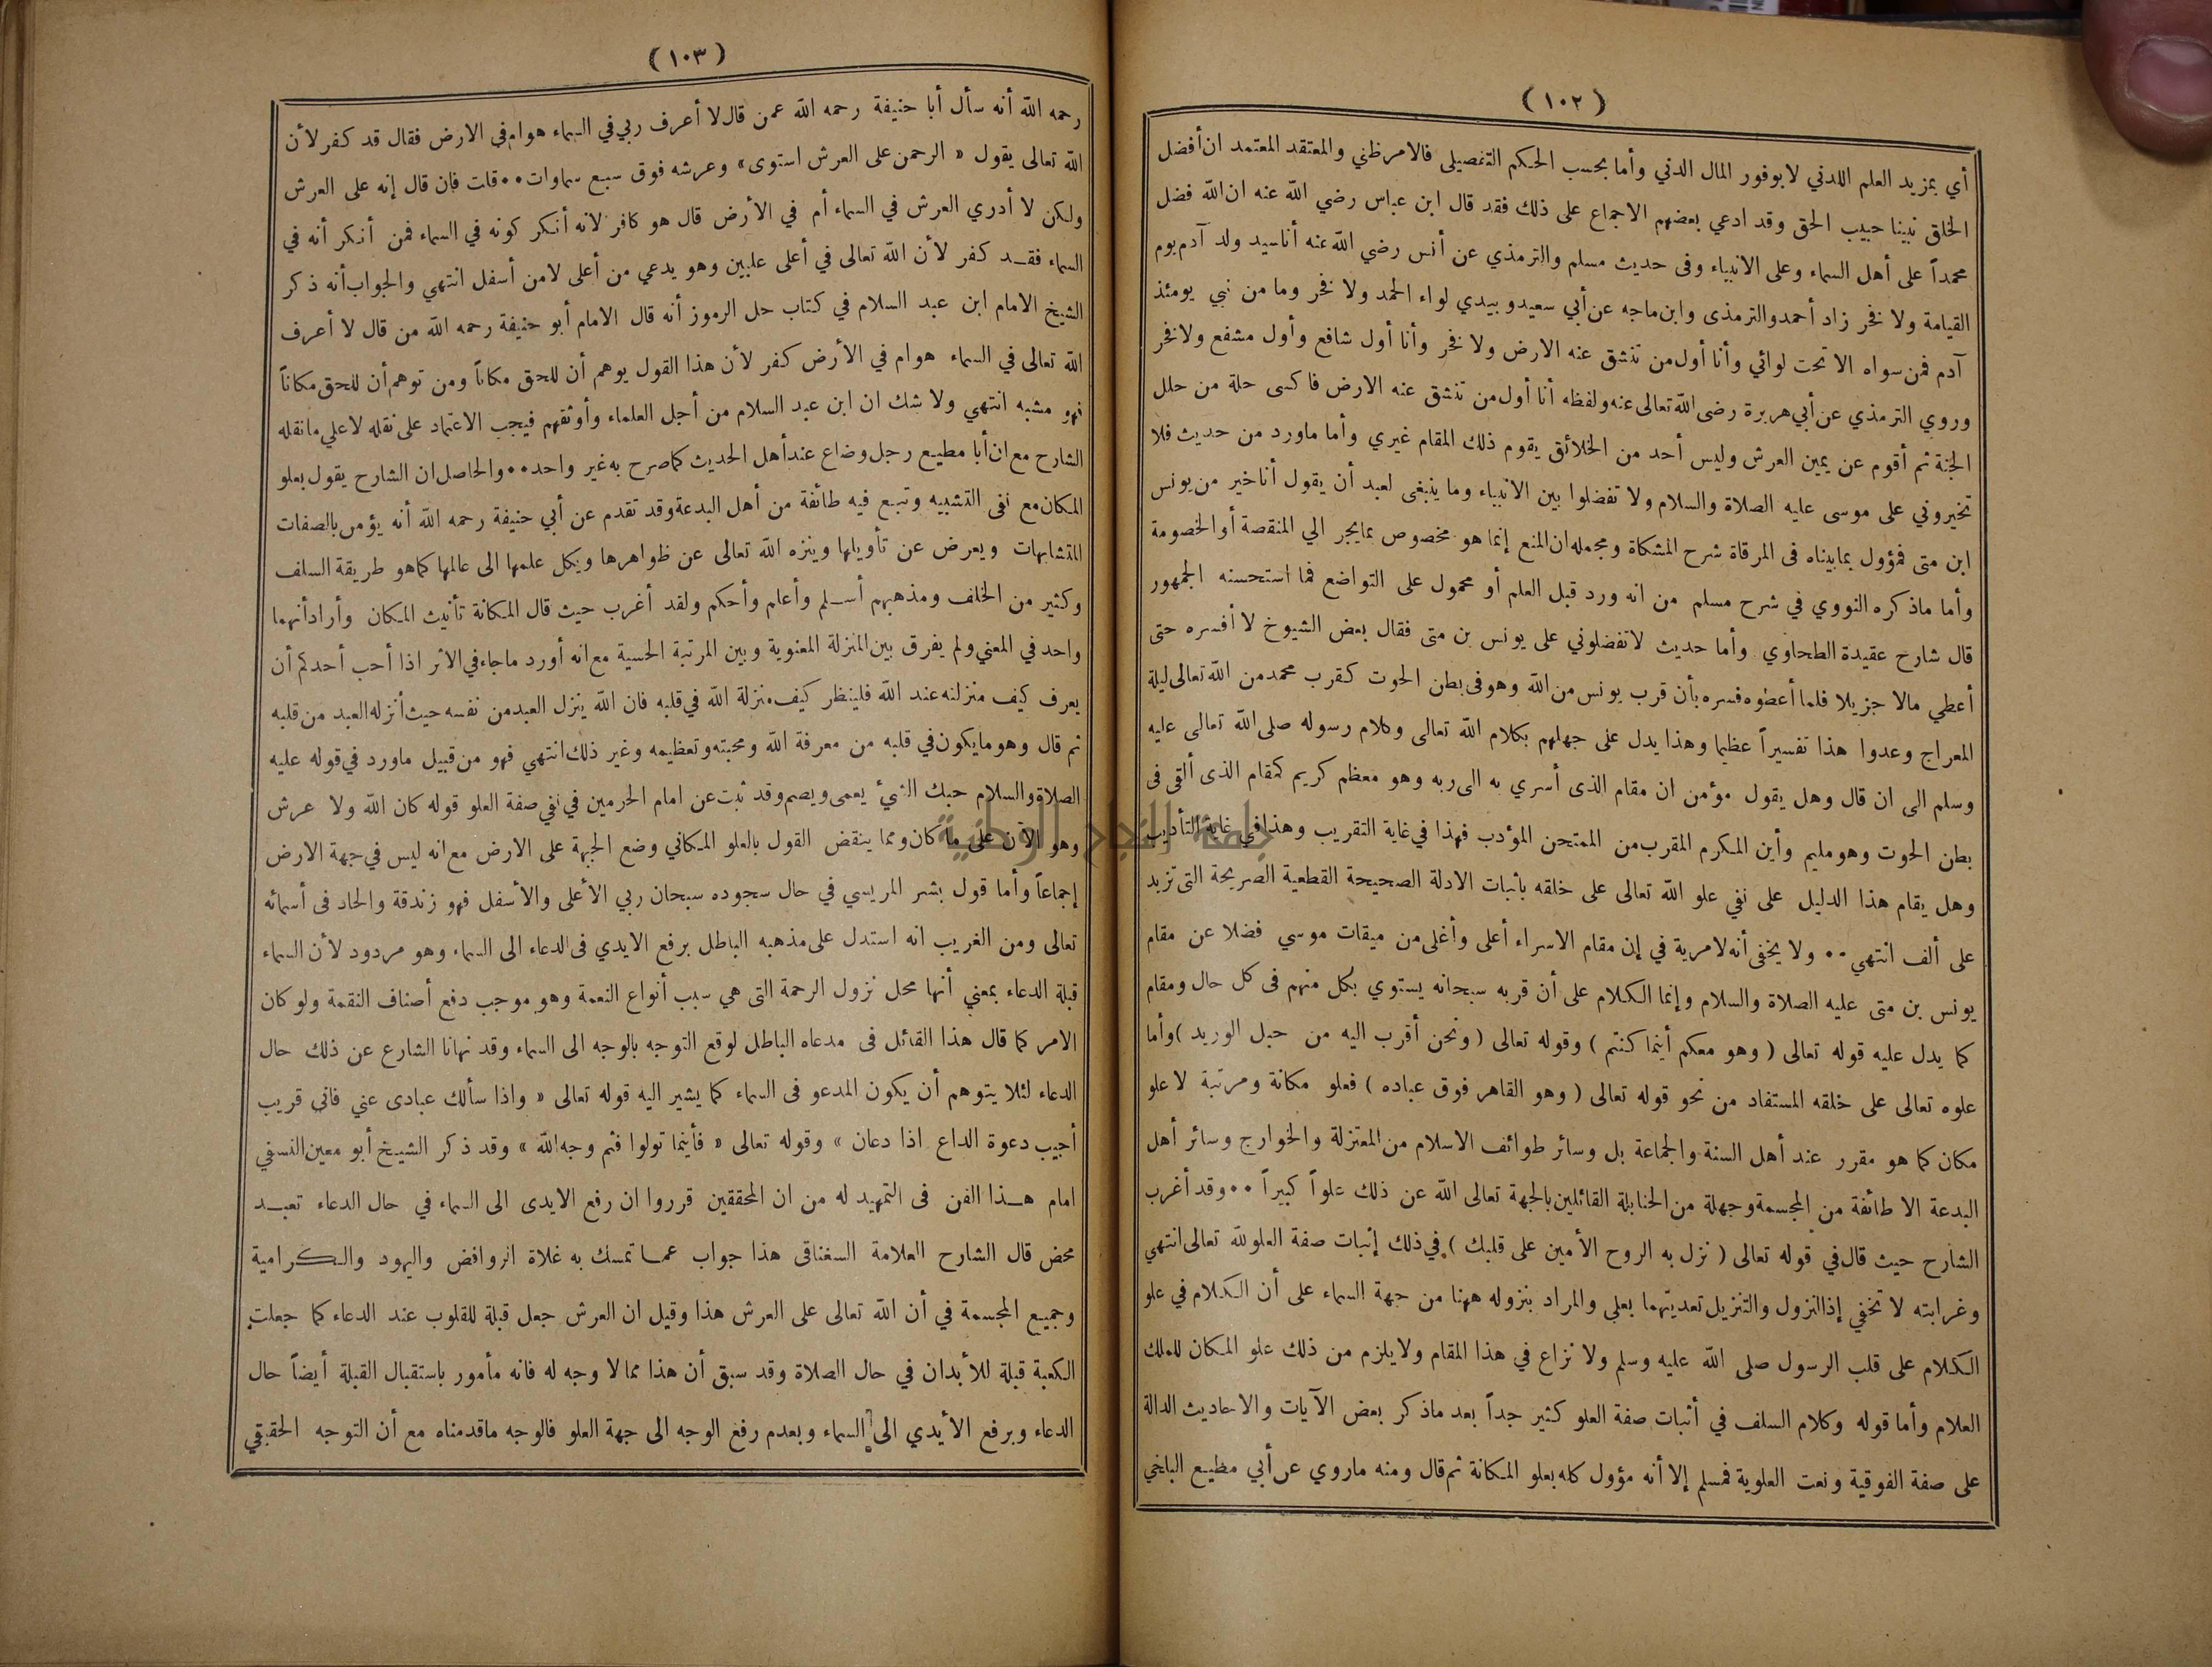 (١٠٢)
أي بمزيد العلم اللدني لابوفور المال الدني وأما بحسب الحكم التفصيلي فالامر ظني والمعتقد المعتمد ان أفضل
الخلق نبينا حبيب الحق وقد ادعي بعضهم الاجماع على ذلك فقد قال ابن عباس رضي الله عنه ان الله فضل
محمداً على أهل السماء وعلى الانبياء وفى حديث مسلم والترمذي عن أنس رضي الله عنه أناسيد ولد آدم يوم
القيامة ولا فخر زاد أحمد والترمذى وابن ماجه عن أبي سعيد وبيدي لواء الحمد ولا فخر وما من نبي يومئذ
آدم فمن سواه الا تحت لوائي وأنا أول من تنشق عنه الارض ولا فخر وأنا أول شافع وأول مشفع ولا فخر
وروي الترمذي عن أبي هريرة رضى الله تعالى عنه ولفظه أنا أول من تنشق عنه الارض فاكسى حلة من حلل
الجنة ثم أقوم عن يمين العرش وليس أحد من الخلائق يقوم ذلك المقام غيري وأما ماورد من حديث فلا
تخيروني على موسى عليه الصلاة والسلام ولا تفضلوا بين الانبياء وما ينبغى لعبد أن يقول أناخير من يونس
ابن متى فمؤول بمابيناه فى المرقاة شرح المشكاة ومجمله ان المنع إنما هو مخصوص بمايجر الي المنقصة أو الخصومة
وأما ماذكره النووي في شرح مسلم من انه ورد قبل العلم أو محمول على التواضع فما استحسنه الجمهور
قال شارح عقيدة الطحاوي وأما حديث لاتفضلوني على يونس بن متى فقال بعض الشيوخ لا أفسره حتى
أعطي مالا جزيلا فلما أعطوه فسره بأن قرب يونس من الله وهو فى بطن الحوت كقرب محمد من الله تعالى ليلة
المعراج وعدوا هذا تفسيراً عظيما وهذا يدل على جهلهم بكلام الله تعالى وكلام رسوله صلى الله تعالى عليه
وسلم الى ان قال وهل يقول مؤمن ان مقام الذى أسري به الى ربه وهو معظم كريم كمقام الذى ألقى فى
بطن الحوت وهو مليم وأين المكرم المقرب من الممتحن المؤدب فهذا في غاية التقريب وهذا في غاية التأديب
وهل يقام هذا الدليل على نفي علو الله تعالى على خلقه باثبات الادلة الصحيحة القطعية الصريحة التى تزيد
على ألف انتهي ٠٠ ولا يخفى أنه لامرية في إن مقام الاسراء أعلى وأغلى من ميقات موسي فضلا عن مقام
يونس بن متى عليه الصلاة والسلام وإنما الكلام على أن قربه سبحانه يستوي بكل منهم فى كل حال ومقام
كما يدل عليه قوله تعالى ( وهو معكم أينما كنتم ) وقوله تعالى ( ونحن أقرب اليه من حبل الوريد ) وأما
علوه تعالى على خلقه المستفاد من نحو قوله تعالى ( وهو القاهر فوق عباده ) فعلو مكانة ومرتبة لا علو
مكان كما هو مقرر عند أهل السنة والجماعة بل وسائر طوائف الاسلام من المعتزلة والخوارج وسائر أهل
البدعة الا طائفة من المجسمة وجهلة من الحنابلة القائلين بالجهة تعالى الله عن ذلك علواً كبيراً ٠٠ وقد أغرب
الشارح حيث قال في قوله تعالى ( نزل به الروح الأمين على قلبك ) في ذلك إثبات صفة العلو لله تعالى انتهي
وغرابته لا تخفي إذ النزول والتنزيل تعديتهما بعلي والمراد بنزوله ههنا من جهة السماء على أن الكلام في علو
الكلام على قلب الرسول صلى الله عليه وسلم ولا نزاع في هذا المقام ولا يلزم من ذلك علو المكان للملك
العلام وأما قوله وكلام السلف في أثبات صفة العلو كثير جداً بعد ماذكر بعض الآيات والاحاديث الدالة
على صفة الفوقية ونعت العلوية فمسلم إلا أنه مؤول كله بعلو المكانة ثم قال ومنه ماروي عن أبي مطيع البلخي
(١٠٣)
رحمه الله أنه سأل أبا حنيفة رحمه الله عمن قال لا أعرف ربي في السماء هو ام في الارض فقال قد كفر لأن
الله تعالى يقول « الرحمن على العرش استوى » وعرشه فوق سبع سماوات ٠٠ قلت فان قال إنه على العرش
ولكن لا أدري العرش في السماء أم في الأرض قال هو كافر لانه أنكر كونه في السماء فمن أنكر أنه في
السماء فقد كفر لأن الله تعالى في أعلى عليين وهو يدعي من أعلى لا من أسفل انتهي والجواب أنه ذكر
الشيخ الامام ابن عبد السلام في كتاب حل الرموز أنه قال الامام أبو حنيفة رحمه الله من قال لا أعرف
الله تعالى في السماء هو ام في الأرض كفر لأن هذا القول يوهم أن للحق مكاناً ومن توهم أن للحق مكاناً
فهو مشبه انتهي ولا شك ان ابن عبد السلام من أجل العلماء وأوثقهم فيجب الاعتماد على نقله لا علي مانقله
الشارح مع ان أبا مطيع رجل وضاع عند أهل الحديث كماصرح به غير واحد ٠٠ والحاصل ان الشارح يقول بعلو
المكان مع نفى التشبيه وتبع فيه طائفة من أهل البدعة وقد تقدم عن أبي حنيفة رحمه الله أنه يؤمن بالصفات
المتشابهات ويعرض عن تأويلها وينزه الله تعالى عن ظواهرها ويكل علمها الى عالمها كماهو طريقة السلف
وكثير من الخلف ومذهبهم أسلم وأعلم وأحكم ولقد أغرب حيث قال المكانة تأنيث المكان وأراد أنهما
واحد في المعني ولم يفرق بين المنزلة المعنوية وبين المرتبة الحسية مع انه أورد ماجاء في الاثر اذا أحب أحدكم أن
يعرف كيف منزلته عند الله فلينظر كيف منزلة الله في قلبه فان الله ينزل العبد من نفسه حيث أنزله العبد من قلبه
ثم قال وهو مايكون في قلبه من معرفة الله ومحبته وتعظيمه وغير ذلك انتهي فهو من قبيل ماورد في قوله عليه
الصلاة والسلام حبك الشيء يعمى ويصم وقد ثبت عن امام الحرمين في نفي صفة العلو قوله كان الله ولا عرش
وهو الآن على ما كان ومما ينقض القول بالعلو المكاني وضع الجبهة على الارض مع انه ليس في جهة الارض
إجماعاً وأما قول بشر المريسي في حال سجوده سبحان ربي الأعلى والأسفل فهو زندقة والحاد فى أسمائه
تعالى ومن الغريب انه استدل على مذهبه الباطل برفع الايدي فى الدعاء الى السماء وهو مردود لأن السماء
قبلة الدعاء بمعني أنها محل نزول الرحمة التى هي سبب أنواع النعمة وهو موجب دفع أصناف النقمة ولو كان
الامر كما قال هذا القائل فى مدعاه الباطل لوقع التوجه بالوجه الى السماء وقد نهانا الشارع عن ذلك حال
الدعاء لئلا يتوهم أن يكون المدعو فى السماء كما يشير اليه قوله تعالى « واذا سألك عبادى عني فاني قريب
أجيب دعوة الداع اذا دعان » وقوله تعالى « فأينما تولوا فثم وجه الله » وقد ذكر الشيخ أبو معين النسفي
امام هذا الفن فى التمهيد له من ان المحققين قرروا ان رفع الايدى الى السماء في حال الدعاء تعبد
محض قال الشارح العلامة السغناقى هذا جواب عما تمسك به غلاة الروافض واليهود والكرامية
وجميع المجسمة في أن الله تعالى على العرش هذا وقيل ان العرش جعل قبلة للقلوب عند الدعاء كما جعلت
الكعبة قبلة للأبدان في حال الصلاة وقد سبق أن هذا مما لا وجه له فانه مأمور باستقبال القبلة أيضاً حال
الدعاء وبرفع الأيدي الى السماء وبعدم رفع الوجه الى جهة العلو فالوجه ماقدمناه مع أن التوجه الحقيقي
جامعة النجاح الوطنية